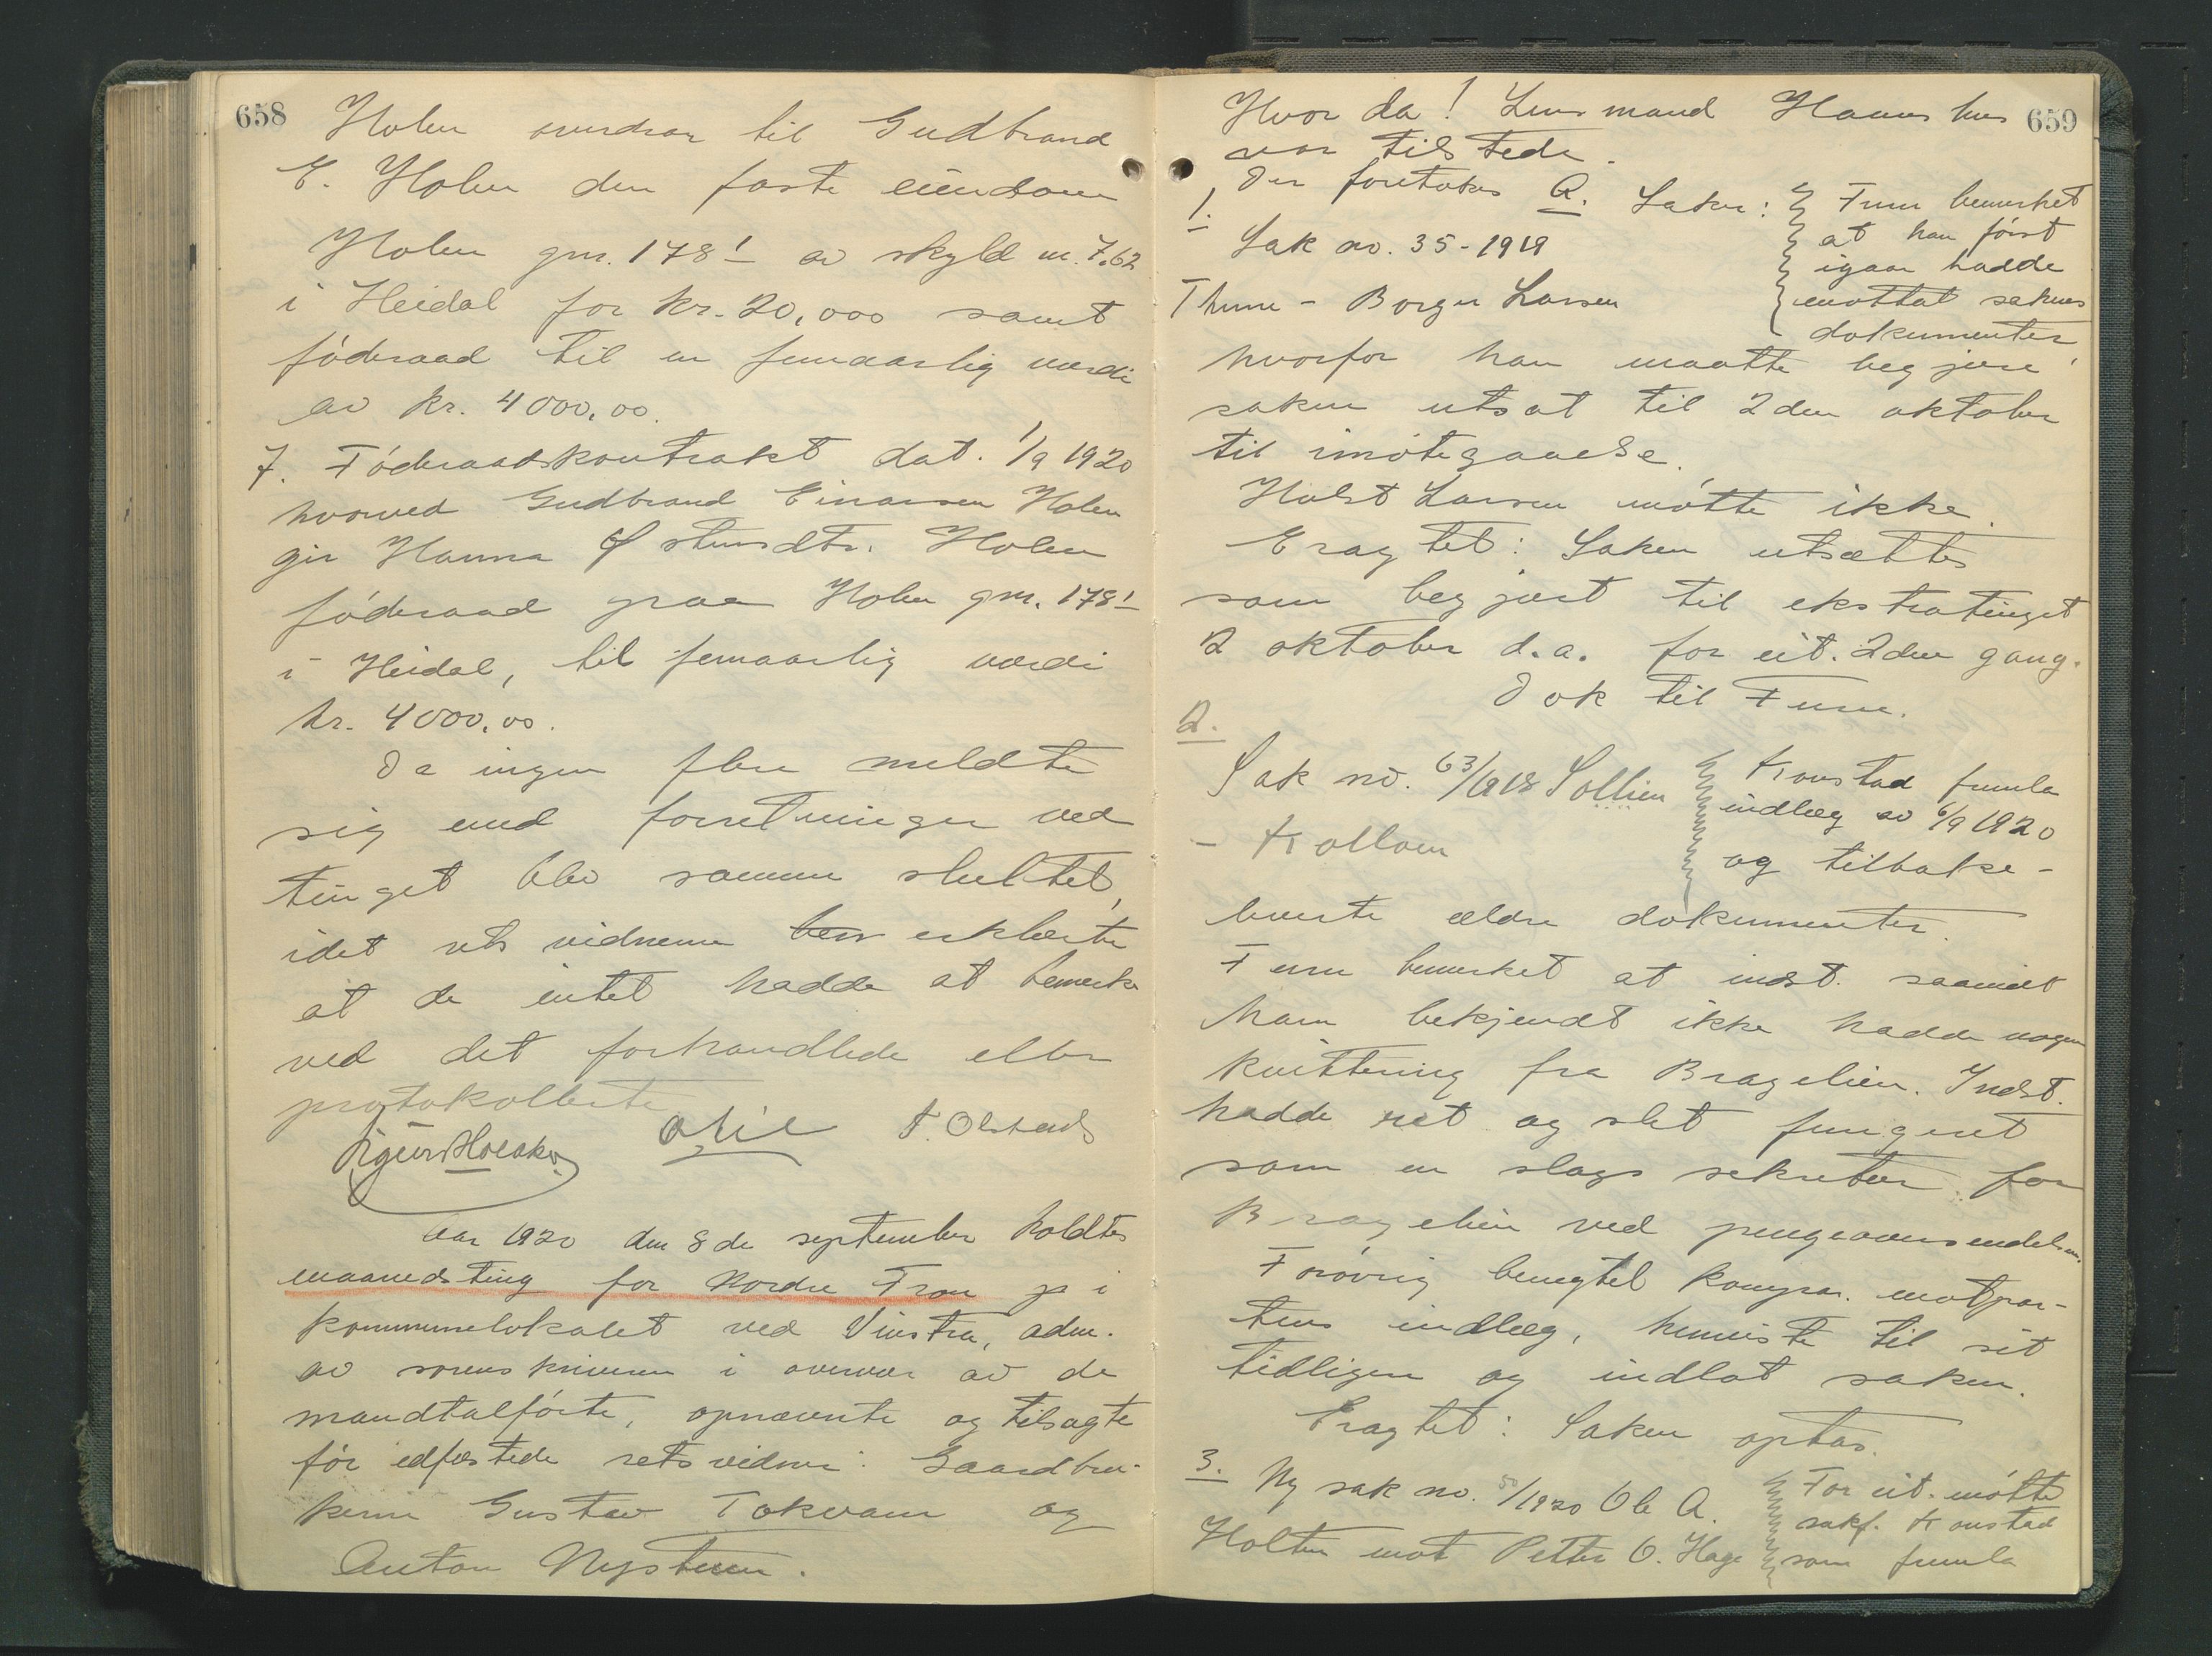 658
Holen overdrar til Gudbrand
E. Holen den faste eiendom
Holen gnr. 178¹ av skyld m. 7.62
i Heidal for kr. 20,000 samt
føderaad til en femaarlig værdi
av kr. 4000,00.
7. Føderaadskontrakt dat. 1/9 1920
hvorved Gudbrand Einarsen Holen
gir Hanna Østensdtr. Holen
føderaad paa Holen gnr. 178¹
i Heidal, til femaarlig værdi
kr. 4000,00.
Da ingen flere meldte
sig med forretninger ved
tinget blev samme sluttet,
idet retsvidnerne bem erklærte
at de intet hadde at bemerke
ved det forhandlede eller
protokollerte
O Lie T. Olstad
Aar 1920 den 8de september holdtes
maanedsting for Nordre Fron p i
kommunelokalet ved Vinstra, adm.
av sorenskriveren i overvær av de
mandtalførte, opnævnte og tilsagte
før edfæstede retsvidner: Gaardbru-
kerne Gustav Tokvam og
Anton Nysteen.
659
Hvor da! Lensmand Haarvhus
var tilstede.
Der foretokes A. Saker:
1. Sak no. 35-1919
Thune - Borger Larsen
Furu bemerket
at han først
igaar hadde
mottat sakens
dokumenter,
hvorfor han maatte begjære
saken utsat til 2den oktober
til imøtegaaelse.
Holst Larsen møtte ikke.
Eragtet: Saken utsættes
som begjært til ekstratinget
2 oktober d.a. for cit. 2den gang.
Dok til Furu.
2.
Sak no. 63/1918 Sollien
- Kollom
Kronstad fremla
indlæg av 6/9 1920
og tilbake-
leverte ældre dokumenter.
Furu bemerket at indst. saavidt
ham bekjendt ikke hadde nogen
kvittering fra Bragelien. Indst.
hadde ret og slet fungeret
som en slags sekretær for
Bragelien ved pengeoversendelsen.
Forøvrig benegtet kompar. motpar-
tens indlæg, henviste til sit
tidligere og indlot saken.
Eragtet: Saken optas.
3. Ny sak no. 50/1920 Ole A.
Holten mot Petter O. Hage
For cit. møtte
sakf. Kronstad
som fremla